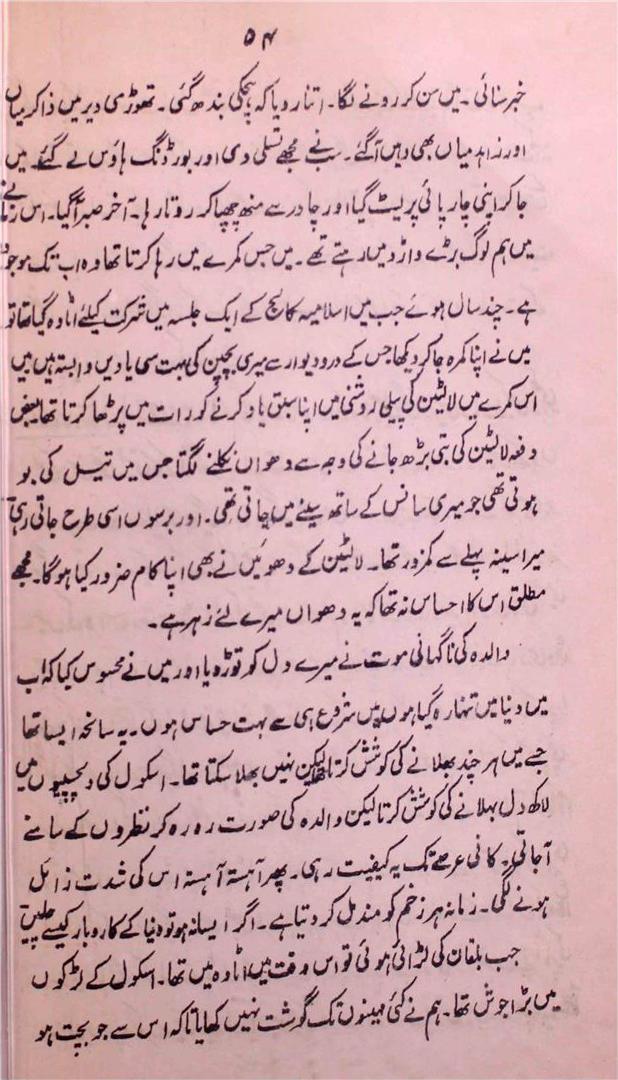 ۵۴
خبر سنائی۔ میں سن کر رونے لگا۔ اتنا رویا کہ ہچکی بندھ گئی۔ تھوڑی دیر میں ذاکر میاں
اور زاہد میاں بھی وہیں آ گئے۔ سب نے مجھے تسلی دی اور بورڈنگ ہاؤس لے گئے۔ میں
جا کر اپنی چارپائی پر لیٹ گیا اور چادر سے منھ چھپا کر روتا رہا۔ آخر صبر آ گیا۔ اس زمانے
میں ہم لوگ بڑے وارڈ میں رہتے تھے۔ میں جس کمرے میں رہا کرتا تھا وہ اب تک موجود
ہے۔ چند سال ہوئے جب میں اسلامیہ کالج کے ایک جلسہ میں شرکت کیلئے اٹاوہ گیا تھا تو
میں نے اپنا کمرہ جا کر دیکھا جس کے در و دیوار سے میری بچپن کی بہت سی یادیں وابستہ ہیں میں
اس کمرے میں لالٹین کی پیلی روشنی میں اپنا سبق یاد کرنے کو رات میں پڑھا کرتا تھا بعض
دفعہ لالٹین کی بتی بڑھ جانے کی وجہ سے دھواں نکلنے لگتا جس میں تیل کی بو
ہوتی تھی جو میری سانس کے ساتھ سینے میں جاتی تھی۔ اور برسوں اسی طرح جاتی رہی
میرا سینہ پہلے سے کمزور تھا۔ لالٹین کے دھوئیں نے بھی اپنا کام ضرور کیا ہوگا۔ مجھے
مطلق اس کا احساس نہ تھا کہ یہ دھواں میرے لئے زہر ہے۔
والدہ کی ناگہانی موت نے میرے دل کو توڑ دیا اور میں نے محسوس کیا کہ اب
میں دنیا میں تنہا رہ گیا ہوں میں شروع ہی سے بہت حساس ہوں۔ یہ سانحہ ایسا تھا
جسے میں ہر چند بھلانے کی کوشش کرتا لیکن نہیں بھلا سکتا تھا۔ اسکول کی دلچسپیوں میں
لاکھ دل بہلانے کی کوشش کرتا لیکن والدہ کی صورت رہ رہ کر نظروں کے سامنے
آ جاتی۔ کافی عرصے تک یہ کیفیت رہی۔ پھر آہستہ آہستہ اس کی شدت زائل
ہونے لگی۔ زمانہ ہر زخم کو مندمل کر دیتا ہے۔ اگر ایسا نہ ہو تو دنیا کے کاروبار کیسے چلیں
جب بلقان کی لڑائی ہوئی تو اس وقت میں اٹاوہ میں تھا۔ اسکول کے لڑکوں
میں بڑا جوش تھا۔ ہم نے کئی مہینوں تک گوشت نہیں کھایا تاکہ اس سے جو بچت ہو